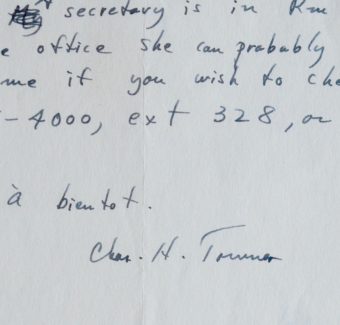 secretary is in Rm
e office she can probably
me if you wish to che
-4000, ext 328, or
à bientot.
Chas. H. Towner